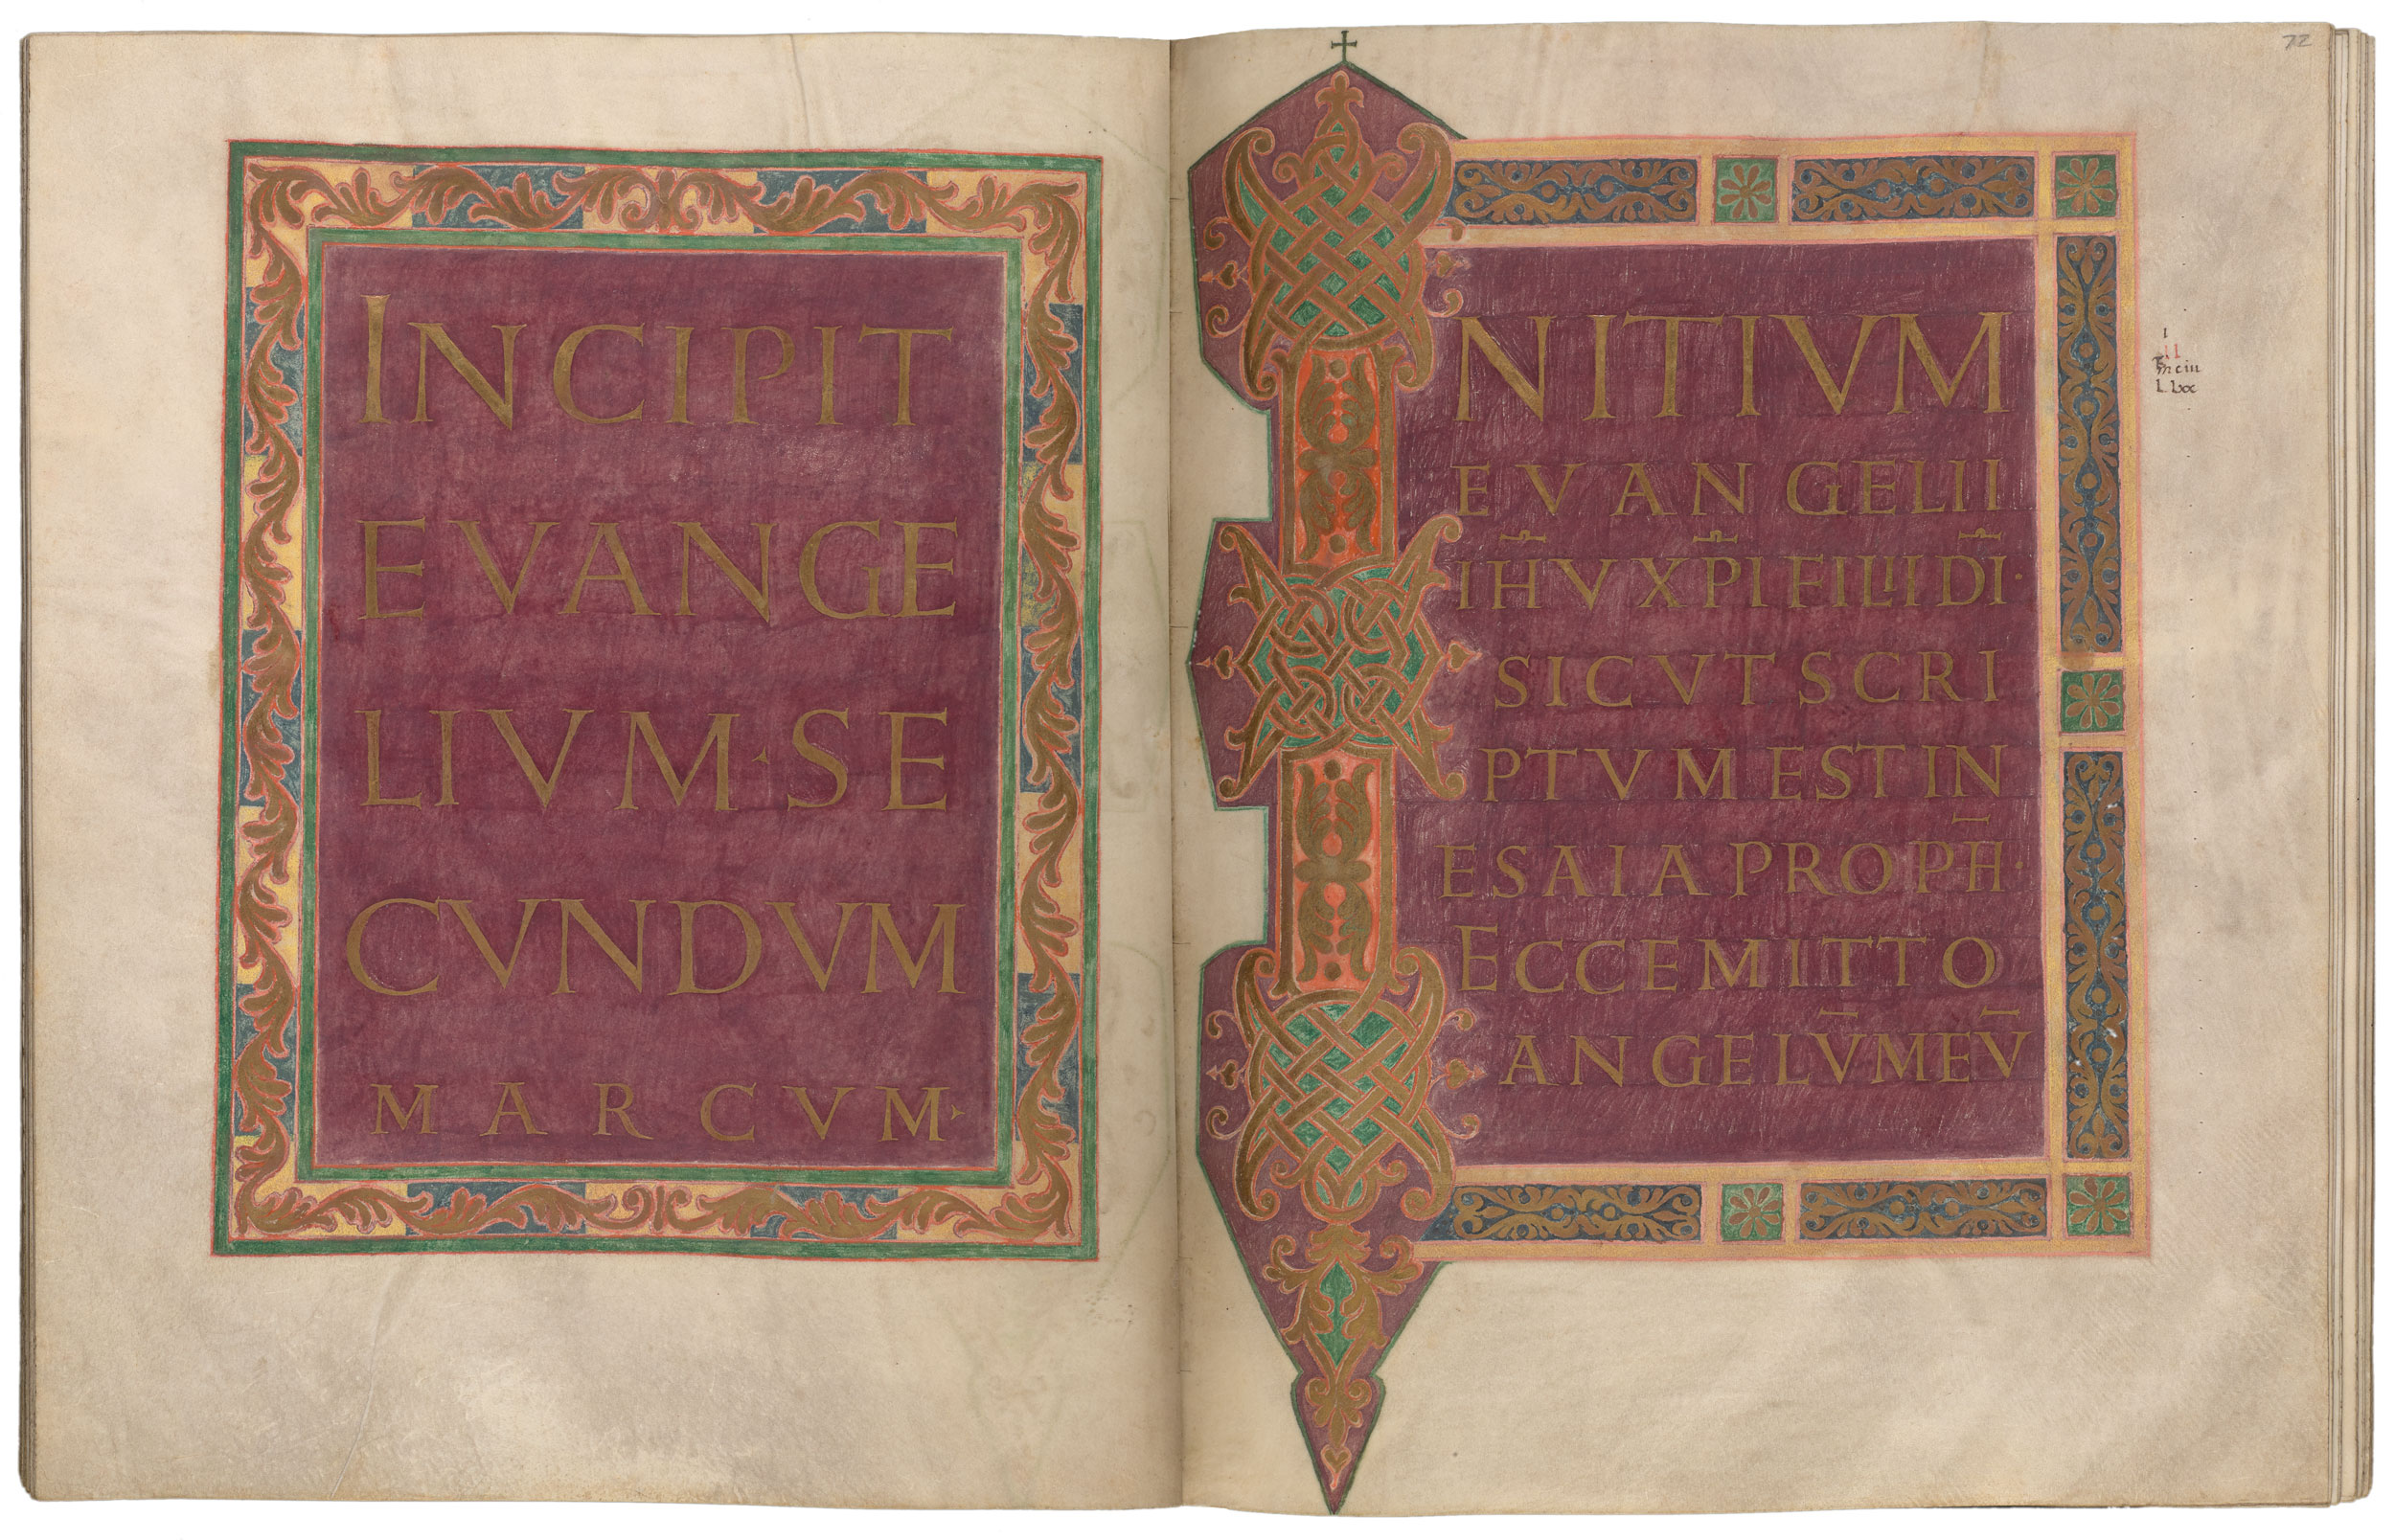 INCIPIT
EVANGE
LIVM · SE
CVNDVM
MARCVM ·
72
INITIVM
EVANGELII
IH̅V XP̅I FILII DI̅ ·
SICVT SCRI
PTVM EST IN
ESAIA PROPH̅ ·
ECCE MITTO
ANGELV̅ MEV̅
I
II
L Lxx